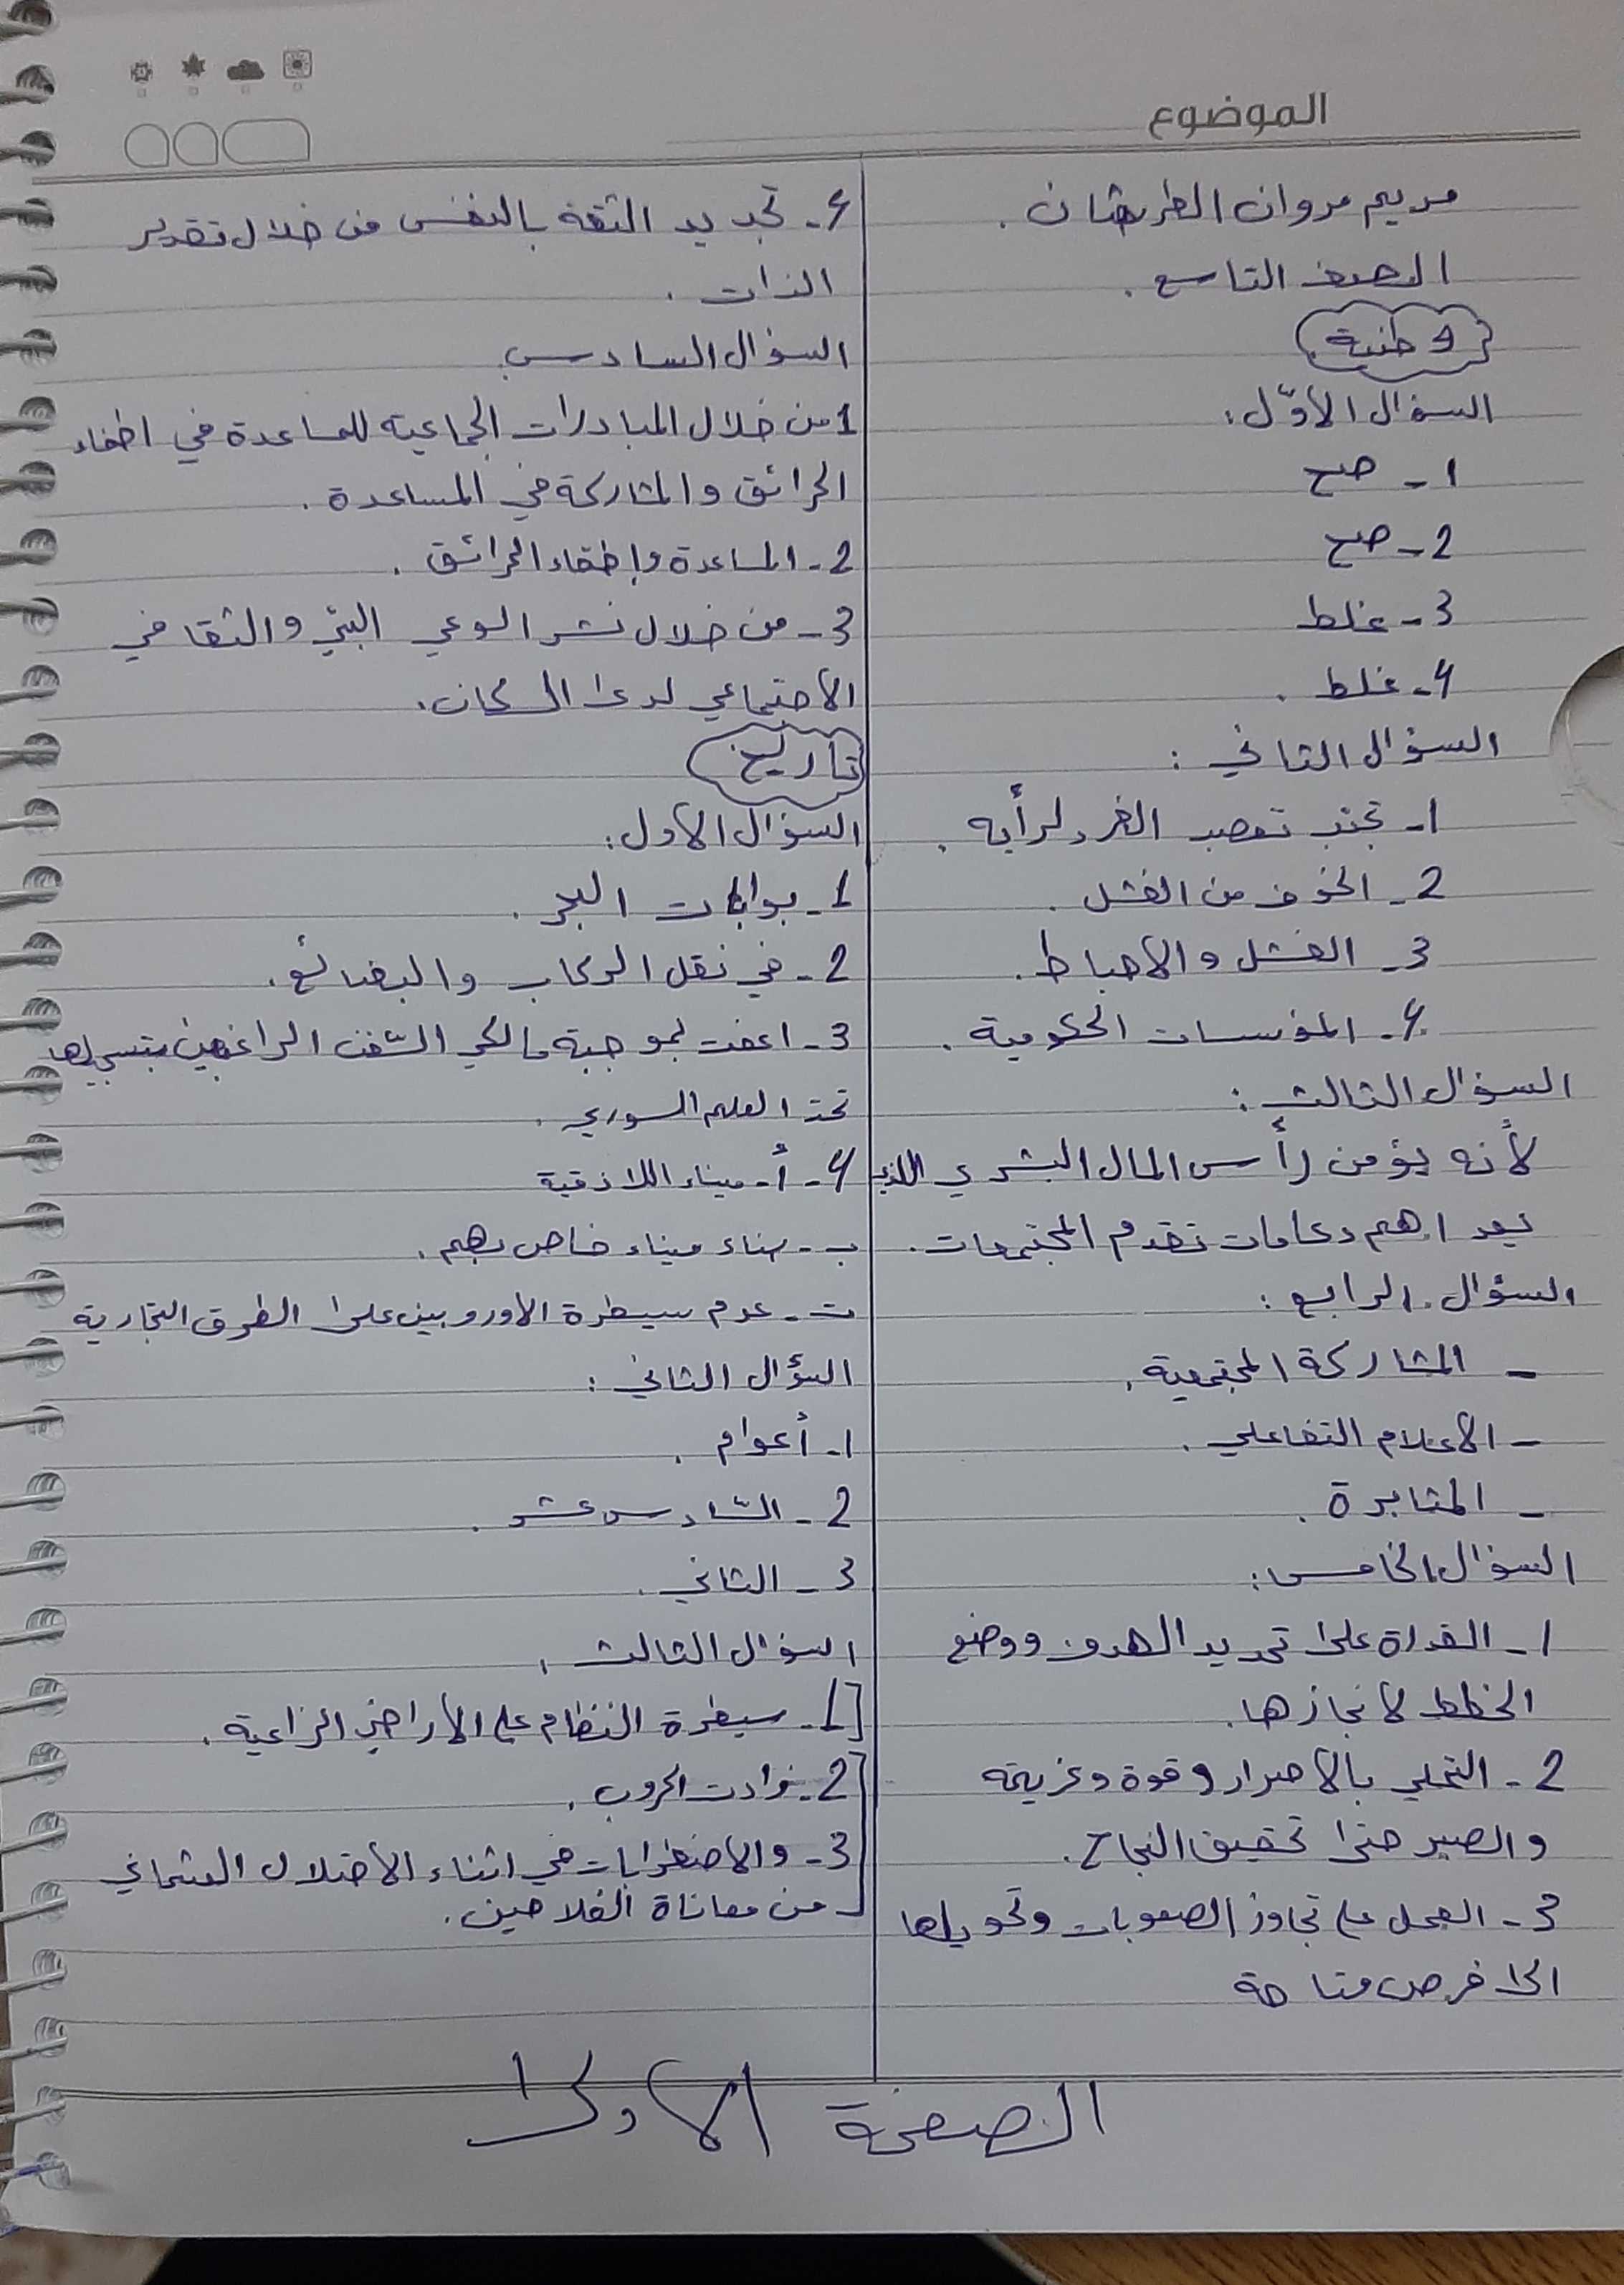 الموضوع
مريم مروان الطرشان .
الصف التاسع .
وطنية
السؤال الأوّل :
1- صح
2- صح
3- غلط
4- غلط .
السؤال الثاني :
1- تجنب تعصب الفرد لرأيه .
2- الخوف من الفشل .
3- الفشل والاحباط .
4- المؤسسات الحكومية .
السؤال الثالث :
لأنه يؤمن رأس المال البشري الذي
يعد اهم دعامات تقدم المجتمعات .
السؤال الرابع :
- المشاركة المجتمعية .
- الاعلام التفاعلي .
- المثابرة .
السؤال الخامس :
1- القدراة على تحديد الهدف ووضع
الخطط لانجازها .
2- التحلي بالاصرار وقوة وعزيمة
والصبر حتى تحقيق النجاح .
3- العمل على تجاوز الصعوبات وتحويلها
الى فرص متاحة
4- تجديد الثقة بالنفس من خلال تقدير
الذات .
السؤال السادس
1 من خلال المبادرات الجماعية للمساعدة في اطفاء
الحرائق والمشاركة في المساعدة .
2- المساعدة وإطفاء الحرائق .
3- من خلال نشر الوعي البيئي والثقافي
الاجتماعي لدى السكان .
تاريخ
السؤال الأول :
1- بوابات البحر .
2- في نقل الركاب والبضائع .
3- اعفت بموجبة مالكي السفن الراغبين بتسجيلها
تحت العلم السوري .
4- أ- ميناء اللاذقية
ب- بناء ميناء خاص بهم .
ت- عدم سيطرة الاوروبين على الطرق التجارية
السؤال الثاني :
1- أعوام .
2- السّادس عشر .
3- الثاني .
السؤال الثالث :
1- سيطرة النظام على الأراضي الزاعية .
2- زادت الحروب .
3- والاضطرابات في اثناء الأحتلال العثماني
من معاناة الفلاحين .
الصفحة الاولى